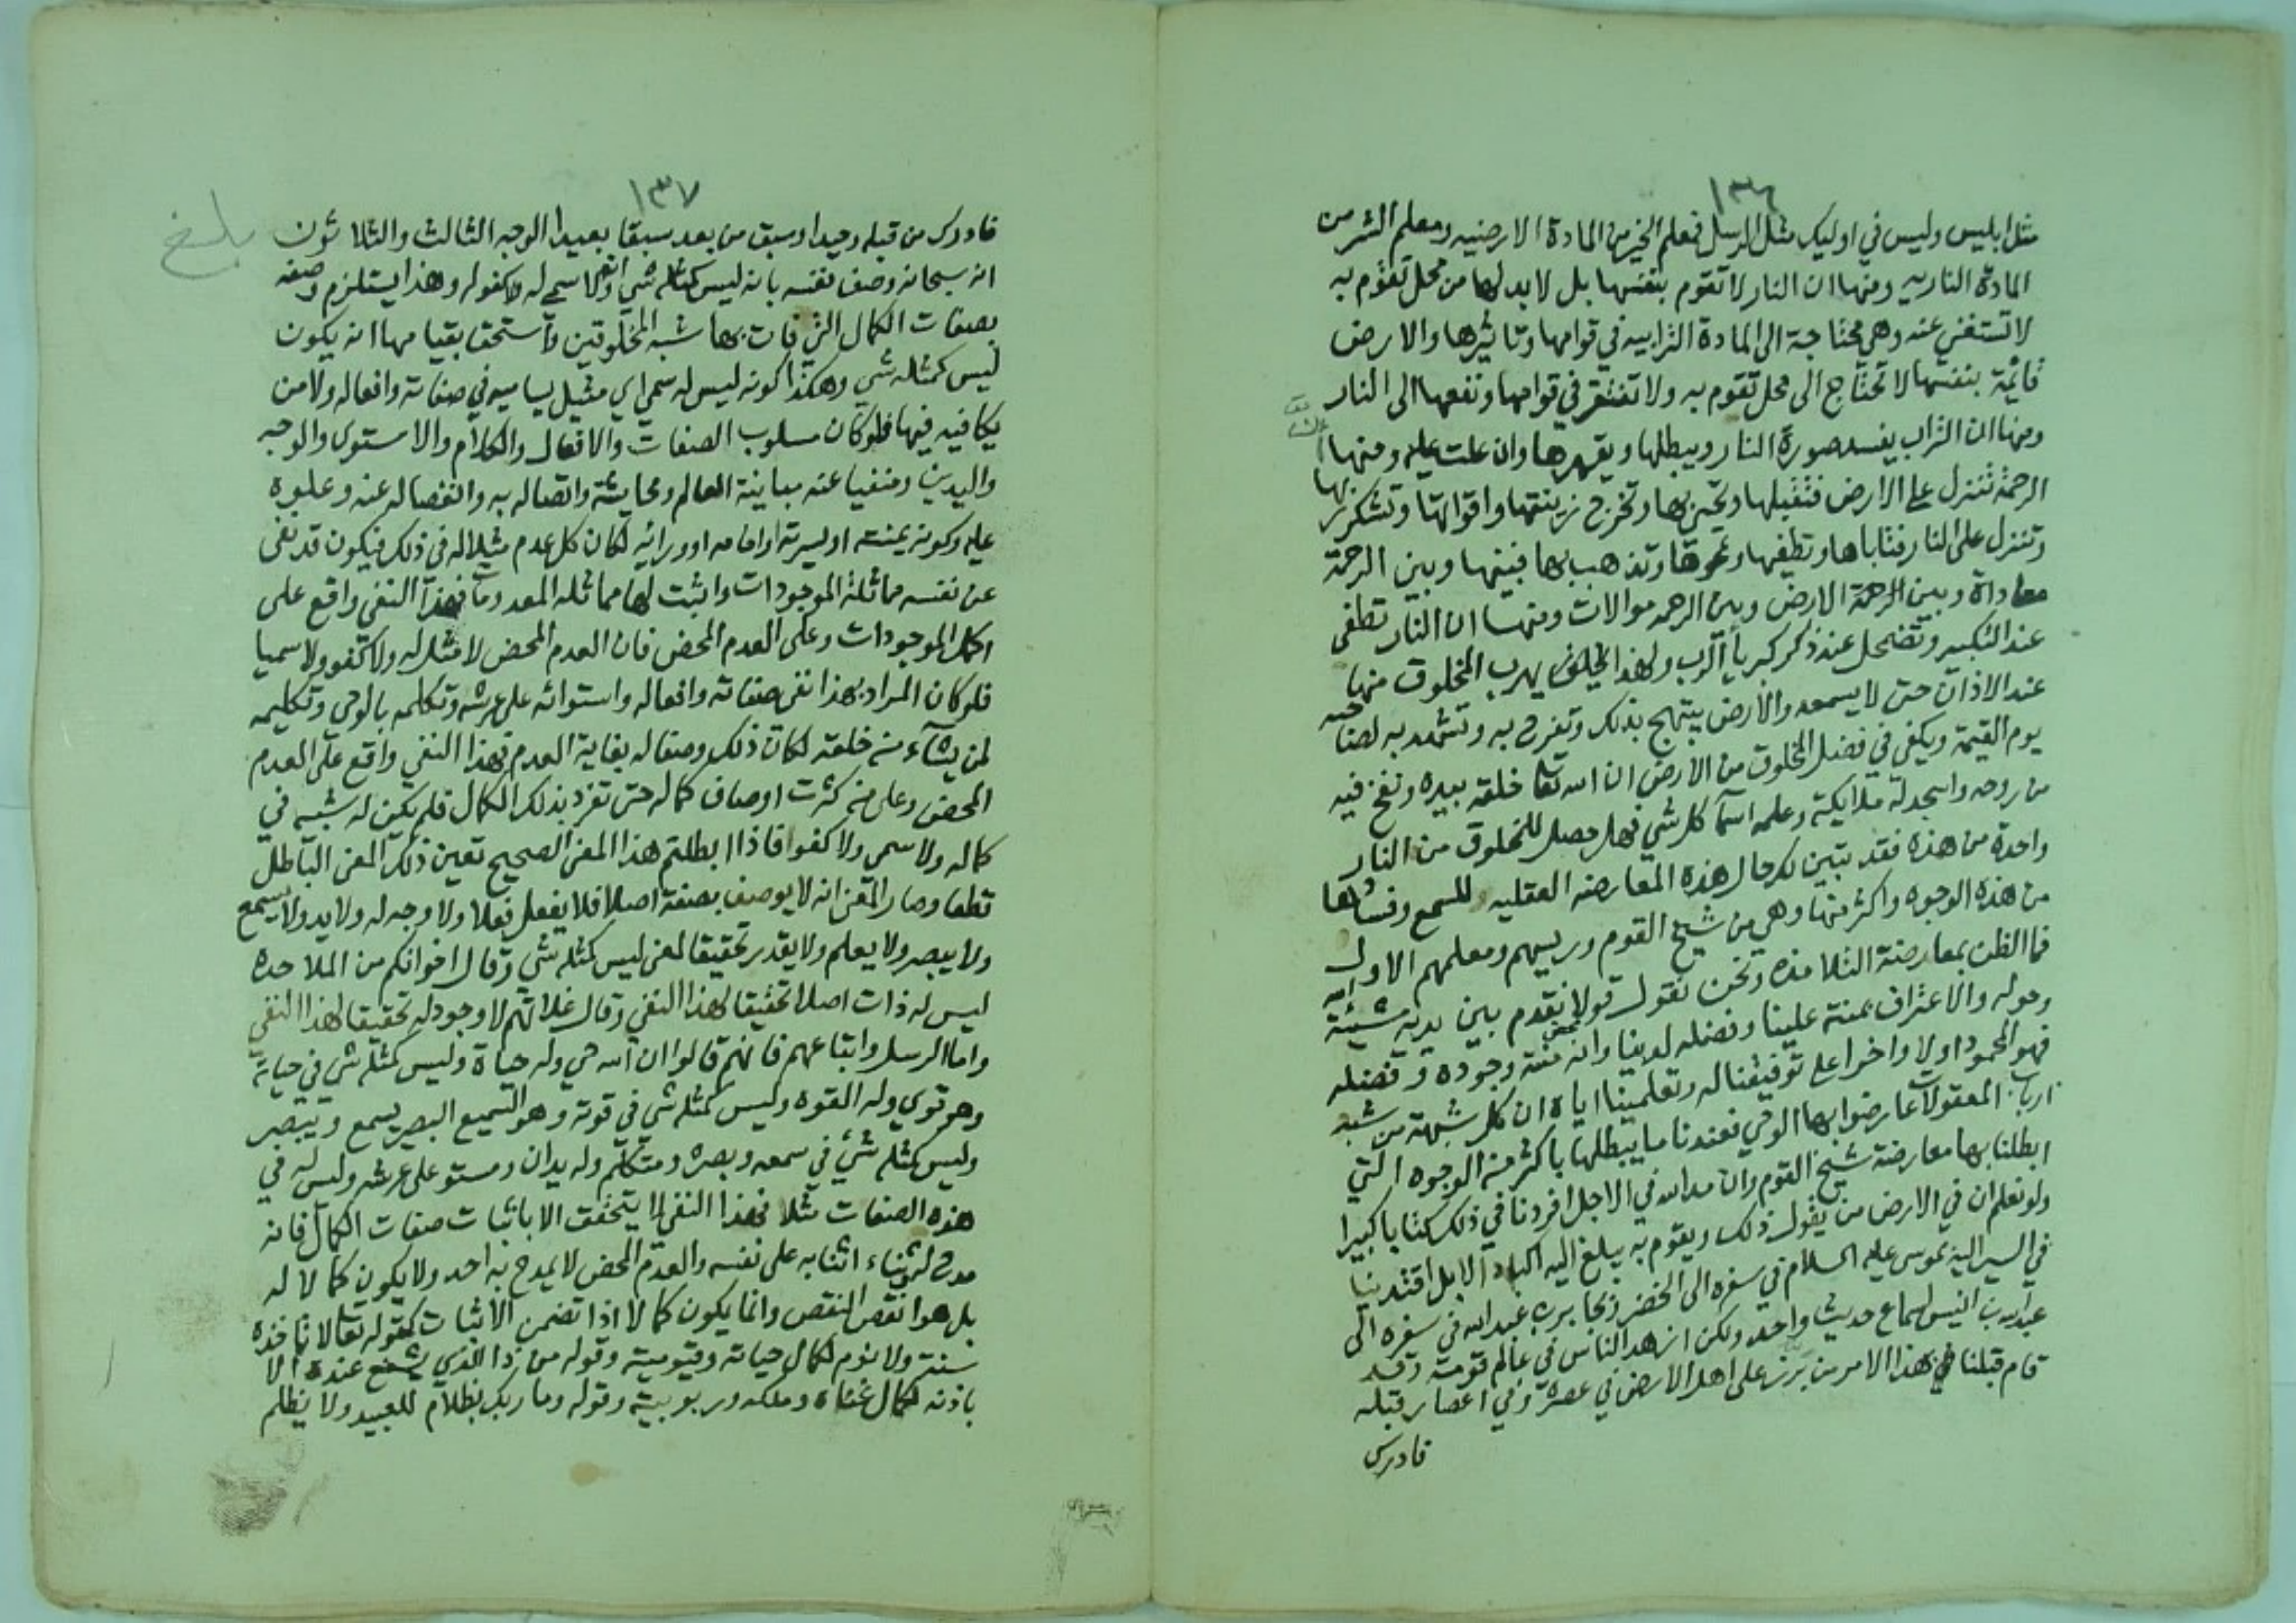 ١٣٦
مثل ابليس وليس في اوليك مثل الرسل فمعلم الخير من المادة الارضيه ومعلم الشر من
المادة الناريه ومنها ان النار لا تقوم بنفسها بل لا بد لها من محل تقوم به
لا تستغني عنه وهي محتاجة الى المادة الترابيه في قوامها وتاثيرها والارض
قائمة بنفسها لا تحتاج الى محل تقوم به ولا تفتقر في قوامها ونفعها الى النار
ومنها ان التراب يفسد صورة النار ويبطلها ويقهرها وان علت عليه ومنها ان
الرحمة تنزل على الارض فتقبلها وتحيى بها وتخرج زينتها واقواتها وتشكر ربها
وتنزل على النار فتاباها وتطفيها وتمحوها وتذهب بها فبينها وبين الرحمة
معاداة وبين الرحمة الارض وبين الرحمه موالات ومنها ان النار تطفى
عند التكبير وتضمحل عند ذكر كبرياء الرب ولهذا يهرب المخلوق منها
عند الاذان حتى لا يسمعه والارض يبتهج بذلك وتفرح به وتشهد به لصاحبه
يوم القيمة ويكفي في فضل المخلوق من الارض ان الله تعا خلقه بيده ونفخ فيه
من روحه واسجد له ملايكته وعلمه اسما كل شي فهل حصل للمخلوق من النار
واحدة من هذه فقد تبين لك حال هذه المعارضه العقليه للسمع وفسادها
من هذه الوجوه واكثر منها وهي من شيخ القوم ورييسهم ومعلمهم الاول
فما الظن بمعارضة التلامذه ونحن نقول قولا نقدم بين يديه مشيئة الله
وحوله والاعتراف بمنته علينا وفضله لدينا وانه محض منته وجوده وفضله
فهو المحمود اولا واخرا على توفيقنا له وتعليمنا اياه ان كل شبهة من شبه
ارباب المعقولات عارضوا بها الوحي فعندنا ما يبطلها باكثر من الوجوه التي
ابطلنا بها معارضة شيخ القوم وان مد الله في الاجل افردنا في ذلك كتابا كبيرا
ولو نعلم ان في الارض من يقول ذلك ويقوم به يبلغ اليه اكباد الابل اقتدينا
في السير اليه بموسى عليه السلام في سفره الى الخضر وبجابر بن عبد الله في سفره الى
عبد الله بن انيس لسماع حديث واحد ولكن ازهد الناس في عالم قومه وقد
قام قبلنا في هذا الامر من برز على اهل الارض في عصره وفي اعصار قبله
فادرك
١٣٧
بلغ
فادرك من قبله وحيدا وسبق من بعد سبقا بعيدا الوجه الثالث والثلاثون
انه سبحانه وصف نفسه بانه ليس كمثله شي وانه لا سمي له ولا كفو له وهذا يستلزم وصفه
بصفات الكمال التي فات بها شبه المخلوقين واستحق بقيامها انه يكون
ليس كمثله شي وهكذا كونه ليس له سمي اي مثيل يساميه في صفاته وافعاله ولا من
يكافيه فيها فلو كان مسلوب الصفات والافعال والكلام والاستوى والوجه
واليدين ومنفيا عنه مباينة العالم ومحايثته واتصاله به وانفصاله عنه وعلوه
عليه وكونه يمنته او يسرته او امامه او ورائه لكان كل عدم مثيلا له في ذلك فيكون قد نفى
عن نفسه مماثلة الموجودات واثبت لها مماثله المعدومات فهذا النفي واقع على
اكمل الموجودات وعلى العدم المحض فان العدم المحض لا مثل له ولا كفو ولا سميا
فلو كان المراد بهذا نفى صفاته وافعاله واستوائه على عرشه وتكلمه بالوحي وتكليمه
لمن يشآء من خلقه لكان ذلك وصفا له بغاية العدم فهذا النفي واقع على العدم
المحض وعلى من كثرت اوصاف كماله حتى تفرد بذلك الكمال فلم يكن له شبه في
كماله ولا سمي ولا كفوا فاذا ابطلتم هذا المعنى الصحيح تعين ذلك المعنى الباطل
قطعا وصار المعنى انه لا يوصف بصفة اصلا فلا يفعل فعلا ولا وجه له ولا يد ولا يسمع
ولا يبصر ولا يعلم ولا يقدر تحقيقا لمعنى ليس كمثله شي وقال اخوانكم من الملاحده
ليس له ذات اصلا تحقيقا لهذا النفي وقال غلاتهم لا وجود له تحقيقا لهذا النفي
واما الرسل واتباعهم فانهم قالوا ان الله حي وله حياة وليس كمثله شي في حياته
وهو قوي وله القوه وليس كمثله شي في قوته وهو السميع البصير يسمع ويبصر
وليس كمثله شئ في سمعه وبصره ومتكلم وله يدان ومستو على عرشه وليس له في
هذه الصفات مثلا فهذا النفي لا يتحقق الا باثبات صفات الكمال فانه
مدح له وثناء اثنا به على نفسه والعدم المحض لا يمدح به احد ولا يكون كمالا له
بل هو انقص النقص وانما يكون كمالا اذا تضمن الاثبات كقوله تعالى لا تاخذه
سنة ولا نوم لكمال حياته وقيوميته وقوله من ذا الذي يشفع عنده الا
باذنه لكمال غناه وملكه وربوبيته وقوله وما ربك بظلام للعبيد ولا يظلم